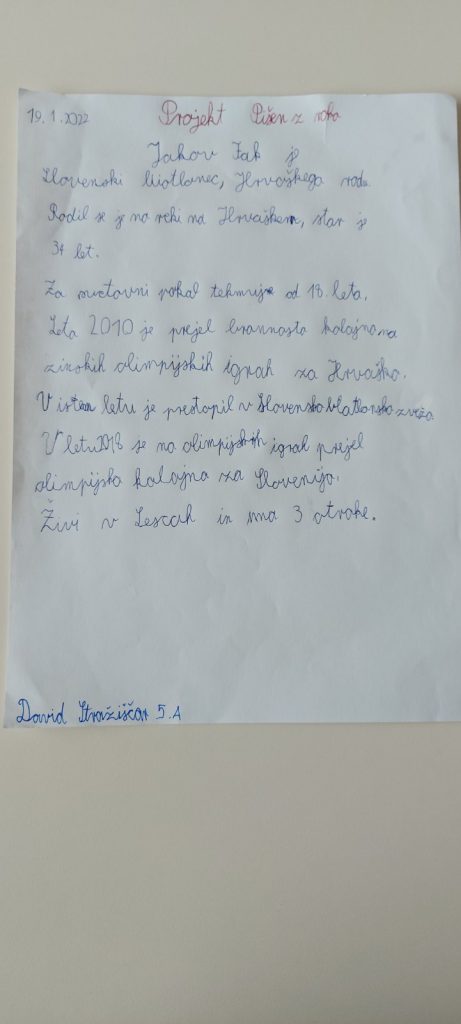 19.1.2022 Projekt Pišem z roko
Jakov Fak je
Slovenski biotlonec, Hrvaškega rodu.
Rodil se je na reki na Hrvaškem, star je
34 let.
Za svetovni pokal tekmuje od 18. leta.
Leta 2010 je prejel bronnasto kolajno na
zimskih olimpijskih igrah za Hrvaško.
V istem letu je prestopil v Slovensko
V letu 2018 se na olimpijskih igrah prejel
olimpijsko kolajno za Slovenijo.
Živi v Lescah in ima 3 otroke.
David Stražiščar 5.A